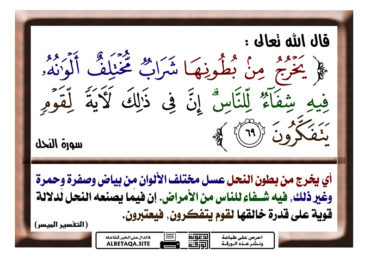 قال الله تعالى :
﴿ يَخْرُجُ مِنۢ بُطُونِهَا شَرَابٌ مُّخْتَلِفٌ أَلْوَٰنُهُۥ
فِيهِ شِفَآءٌ لِّلنَّاسِ ۗ إِنَّ فِى ذَٰلِكَ لَءَايَةً لِّقَوْمٍ
يَتَفَكَّرُونَ ٦٩ ﴾
سورة النحل
أي يخرج من بطون النحل عسل مختلف الألوان من بياض وصفرة وحمرة
وغير ذلك, فيه شفاء للناس من الأمراض. إن فيما يصنعه النحل لدلالة
قوية على قدرة خالقها لقوم يتفكرون, فيعتبرون.
(التفسير الميسر)
احرص على طباعة
ونشر هذه الورقة
فالدال على الخير كفاعله
ALBETAQA.SITE